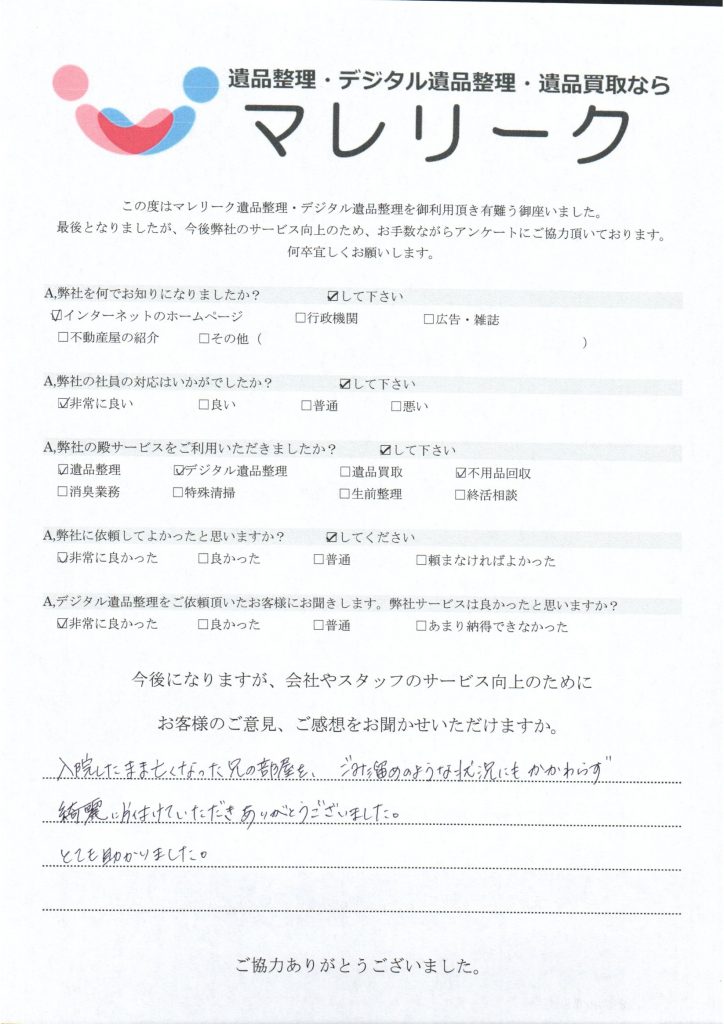 遺品整理・デジタル遺品整理・遺品買取なら
マレリーク
この度はマレリーク遺品整理・デジタル遺品整理を御利用頂き有難う御座いました。
最後となりましたが、今後弊社のサービス向上のため、お手数ながらアンケートにご協力頂いております。
何卒宜しくお願いします。
A,弊社を何でお知りになりましたか？ ☑して下さい
☑インターネットのホームページ □行政機関 □広告・雑誌
□不動産屋の紹介 □その他（ ）
A,弊社の社員の対応はいかがでしたか？ ☑して下さい
☑非常に良い □良い □普通 □悪い
A,弊社の殿サービスをご利用いただきましたか？ ☑して下さい
☑遺品整理 ☑デジタル遺品整理 □遺品買取 ☑不用品回収
□消臭業務 □特殊清掃 □生前整理 □終活相談
A,弊社に依頼してよかったと思いますか？ ☑してください
☑非常に良かった □良かった □普通 □頼まなければよかった
A,デジタル遺品整理をご依頼頂いたお客様にお聞きします。弊社サービスは良かったと思いますか？
☑非常に良かった □良かった □普通 □あまり納得できなかった
今後になりますが、会社やスタッフのサービス向上のために
お客様のご意見、ご感想をお聞かせいただけますか。
入院したまま亡くなった兄の部屋を、ゴミ溜めのような状況にもかかわらず
綺麗に片付けていただきありがとうございました。
とても助かりました。
ご協力ありがとうございました。